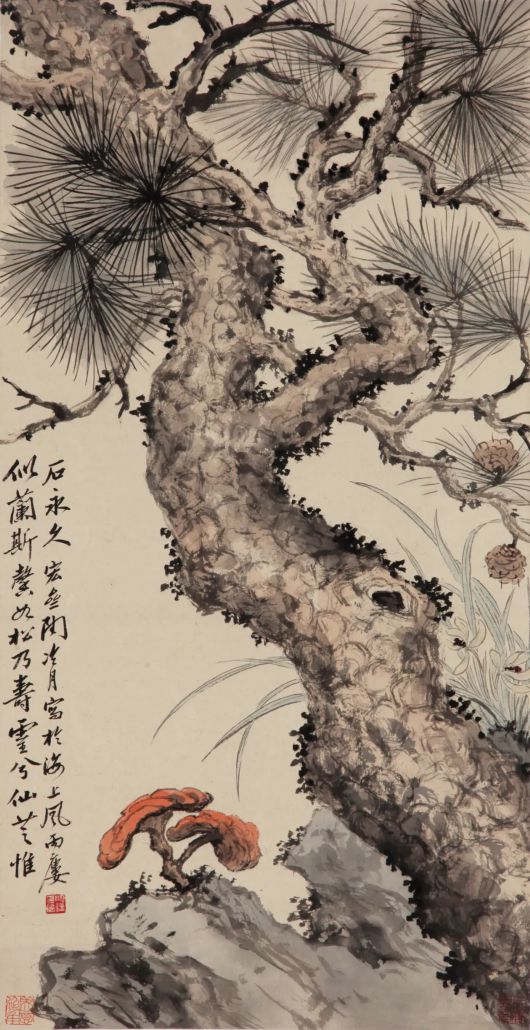 似蘭斯馨如松乃壽靈兮仙芝惟
石永久宏亝陶冷月寫於海上風雨廔